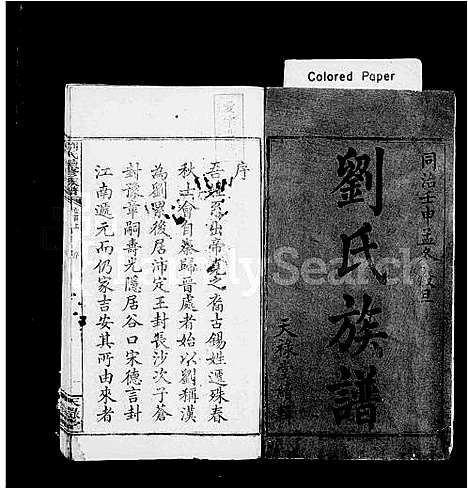 Colored Paper
同治壬申孟冬
劉氏族譜
天祿
序
吾姓系出帝堯之裔古錫姓遷殊春
秋士會自秦歸晉處者始以劉稱漢
為劉累後居沛定王封長沙次子蒼
封豫章嗣壽光隱居谷口宋德言封
江南遞元而仍家吉安其所由來者
FamilySearch